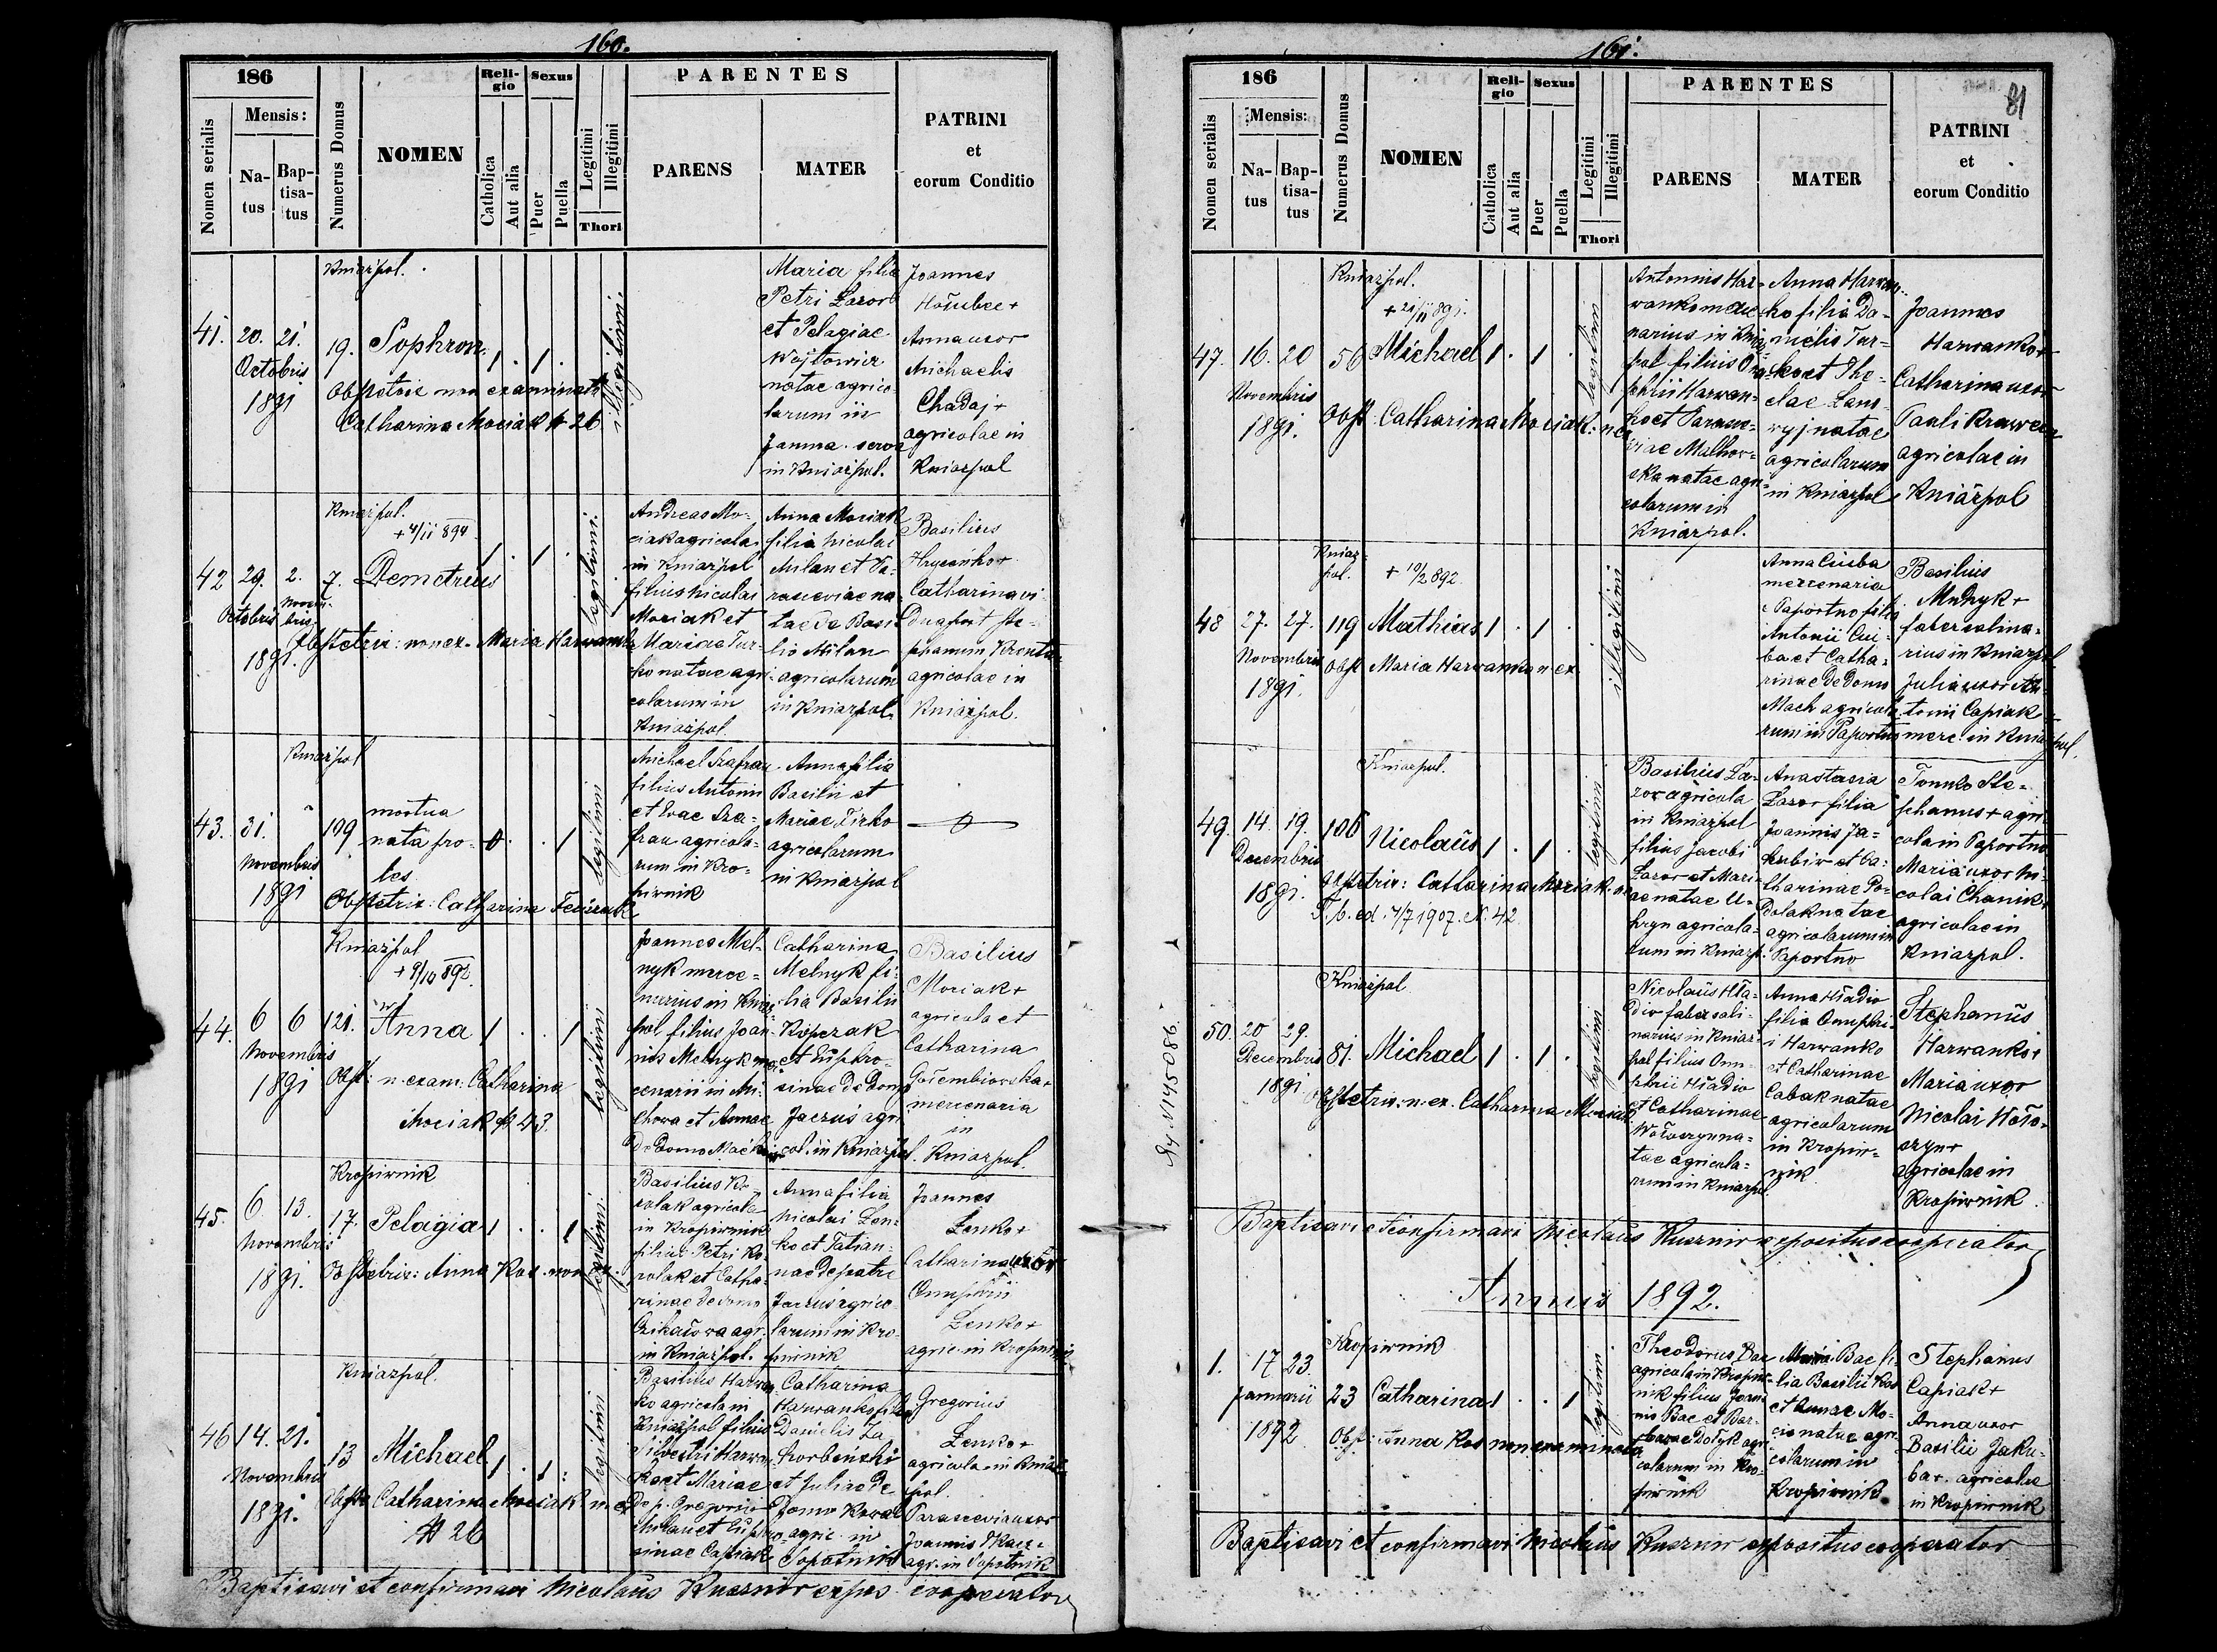 160.
186
Mensis:
Nomen serialis
Na-
tus
Bap-
tisa-
tus
Numerus Domus
NOMEN
Reli-
gio
Catholica
Aut alia
Sexus
Puer
Puella
Legitimi
Illegitimi
Thori
PARENTES
PARENS
MATER
PATRINI
et
eorum Conditio
Kniażpol.
41. 20. 21. 19. Sophron. 1 . 1 .
Octobris
1891
Obstetrix non examinata
Catharina Mociak N 26
illegitimi.
Maria filia
Petri Łazor
et Pelagiae
Wojtowicz
natae agrico
larum in
Jamna serva
in Kniażpol.
Joannes
Hołubec +
Anna uxor
Michaelis
Chadaj +
agricolae in
Kniażpol
Kniażpol.
+ 4/11 894
42 29. 2. 7. Demetrius 1 . 1 .
Octobris Novem-
bris
1891.
Obstetrix: non ex. Maria Harwanko
legitimi.
Andreas Mo-
ciak agricola
in Kniażpol
filius Nicolai
Mociak et
Mariae Tur-
ko natae agri-
colarum in
Kniażpol.
Anna Mociak
filia Nicolai
Milan et Pa-
rasceviae na-
tae de Basi-
lio Milan
agricolarum
in Kniażpol.
Basilius
Hrycanko +
Catharina vi
Dua post Ste-
phanum
agricolae in
Kniażpol.
Kniażpol
43. 31. 109 mortua
nata pro-
les.
Novembris
1891
Obstetrix: Catharina
legitimi
Michael Szafran
filius Antonii
et Evae Sza-
fran agricola-
rum in Kro-
piwnik
Anna filia
Basilii et
Mariae Firko
agricolarum
in Kniażpol
Kniażpol
+ 9/10 892.
44. 6 6 121. Anna 1 . . 1
Novembris
1891
Obst: n. exam: Catharina
Mociak N 43.
legitimi
Joannes Mel-
nyk merce-
narius in Kniaż-
pol filius Joan-
nis Melnyk mer-
cenarii in Mi-
chowa et Annae
De Domo
Catharina
Melnyk fi-
lia Basilii
Kopczak
et Euphro-
sinae de Domo
Jacruś agri
col. in Kniażpol
Basilius
Mociak +
agricola et
Catharina
Gołembiowska +
mercenaria
in
Kniażpol.
Kropiwnik
45. 6. 13. 17. Pelagia 1 . . 1
Novembris
1891.
Obstetrix: Anna Kos. non ex.
legitimi
Basilius Ko-
rolak agricola
in Kropiwnik
filius Petri Ko
rolak et Catha-
rinae de domo
agr.
in Kniażpol.
Anna filia
Nicolai Len-
ko et Tatian-
nae de patre
Jacruś agrico-
larum in Kro-
piwnik
Joannes
Lenko +
Catharina uxor
Onuphrii
Lenko +
agric. in Kropiwnik
Kniażpol.
46 14. 21. 13 Michael 1 . 1 .
Novembris
1891.
Obstr. Catharina Mociak n. ex
N 26
legitimi
Basilius Harwan-
ko agricola in
Kniażpol filius
Silvestri Harwan-
ko et Mariae
De p. Gregorio
Milan et Euphro-
sinae Capiak
Catharina
Harwanko filia
Danielis Za-
horbeński
et Juliae de
Domo Kowal
agric. in
Sopotnik
Gregorius
Lenko +
agricola in Kniaż-
pol
Parascevia uxor
Joannis
agr. in Sopotnik
Baptisavi et confirmavi Nicolaus Kusznir expos. cooperator
161.
81
186
Mensis:
Nomen serialis
Na-
tus
Bap-
tisa-
tus
Numerus Domus
NOMEN
Reli-
gio
Catholica
Aut alia
Sexus
Puer
Puella
Legitimi
Illegitimi
Thori
PARENTES
PARENS
MATER
PATRINI
et
eorum Conditio
Kniażpol.
+ 21/11 891.
47. 16. 20 56 Michael 1 . 1 .
Novembris
1891.
Obst. Catharina Mociak: n ex
legitimi
Antonius Har-
wanko merce
narius in Kniaż-
pol filius Onu-
phrii Harwan-
ko et Parasce-
viae
natae agri-
colarum in
Kniażpol.
Anna Harwan-
ko filia Da-
nielis Tur-
ko et The-
clae
natae
agricolarum
in Kniażpol
Joannes
Harwanko +
Catharina uxor
Pauli Krawec +
agricolae in
Kniażpol
Kniaż-
pol. + 10/2 892.
48 27. 27. 119 Mathias 1 . 1 .
Novembris
1891.
Obst Maria Harwanko n. ex.
illegitimi
Anna Ciuba
mercenaria
e Paportno filia
Antonii Ciu-
ba et Catha-
rinae de Domo
Mach agricola-
rum in Paportno
Basilius
Melnyk +
faber salina-
rius in Kniażpol
Julia uxor An-
tonii Capiak
merc. in Kniażpol.
Kniażpol.
49. 14. 19. 106 Nicolaus 1 . 1 .
Decembris
1891.
Obstetrix: Catharina Mociak. n.
T. b. ed. 4/7 1907. N. 42
legitimi
Basilius Ła-
zor agricola
in Kniażpol
filius Jacobi
Łazor et Mari-
ae natae U-
hryn agricola-
rum in Kniażp.
Anastasia
Łazor filia
Joannis Ja-
kubiw et Ca-
tharinae Po-
dolak natae
agricolarum in
Paportno
Tymko Ste-
phanus + agri-
cola in Paportno
Maria uxor Ni-
colai Chanik +
agricolae in
Kniażpol.
Kniażpol
50. 20 29. 81. Michael 1 . 1 .
Decembris
1891
Obstetrix: n. ex. Catharina Mociak
legitimi
N 145086.
Nicolaus Hła-
dio faber sali-
narius in Kniaż-
pol filius Onu-
phrii Hładio
et Catharinae
Wołoszyn na-
tae agricola-
rum in Kniażpol
Anna Hładio
filia Onuphri-
i Harwanko
et Catharinae
Cabak natae
agricolarum
in Kropiw-
nik
Stephanus
Harwanko +
Maria uxor
Nicolai Woło-
szyn +
agricolae in
Kropiwnik.
Baptisavi et confirmavi Nicolaus Kusznir expositus cooperator
Annus 1892.
Kropiwnik
1. 17 23. 23 Catharina 1 . . 1
Januarii
1892
Obst: Anna Kos non examinata
legitimi
Theodorus Bac
agricola in Kropiw-
nik filius Joan-
nis Bac et Bar-
barae Dołyk agri-
colarum in Kro-
piwnik
Maria Bac fi-
lia Basilii Kos
et Annae Mo-
cio natae agri-
colarum in
Kropiwnik
Stephanus
Capiak +
Anna uxor
Basilii Jaku-
ba +. agricolae
in Kropiwnik
Baptisavi et confirmavi Nicolaus Kusznir expositus cooperator